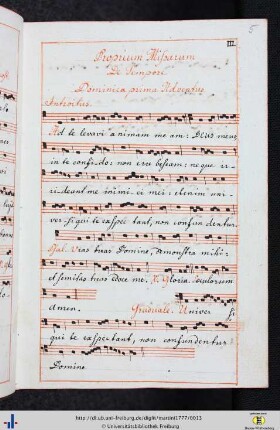 III.
5
Proprium Missarum
De Tempore
Dominica prima Adventus
Introitus.
Ad te levavi animam me am: Deus meus
in te confi do: non eru bescam: neque ir-
rideant me inimi ci mei: etenim uni-
ver si qui te exspec tant, non confun dentur.
Psal. Vias tuas Domine, demonstra mihi:
et semitas tuas doce me. V. Gloria. seculorum
Amen. Graduale. Univer si,
qui te exspectant, non confundentur:
Domine.
http://dl.ub.uni-freiburg.de/diglit/
© Universitätsbibliothek Freiburg